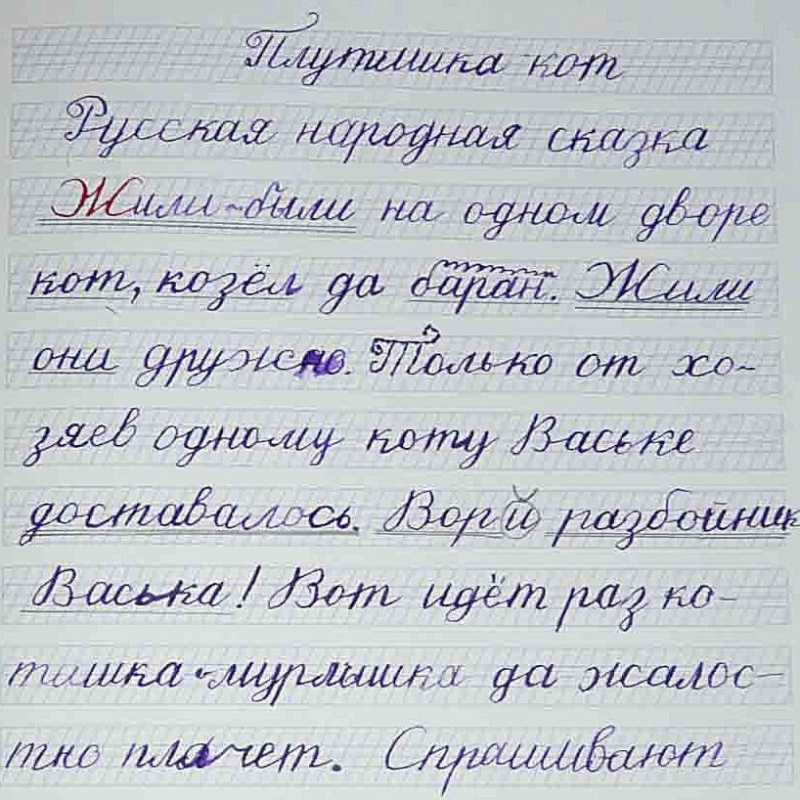 Плутишка кот
Русская народная сказка
Жили-были на одном дворе
кот, козёл да баран. Жили
они дружно. Только от хо-
зяев одному коту Ваське
доставалось. Вор й разбойник
Васька! Вот идёт раз ко-
тишка-мурлышка да жалос-
тно плачет. Спрашивают